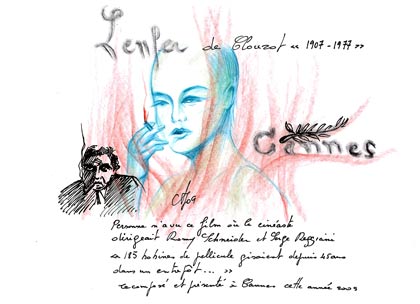 L'enfer de Clouzot « 1907 - 1977 »
Cannes
Personne n'a vu ce film où le cinéaste
dirigeait Romy Schneider et Serge Reggiani
« 185 bobines de pellicule gisaient depuis 45 ans
dans un entrepôt... »
recomposé et présenté à Cannes cette année 2009